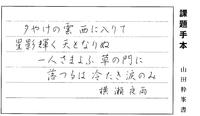 課題手本
山田幹峯書
夕やけの雲西に入りて
星影輝く天となりぬ
一人さまよふ草の門に
落つるは冷たき涙のみ
横瀬夜雨